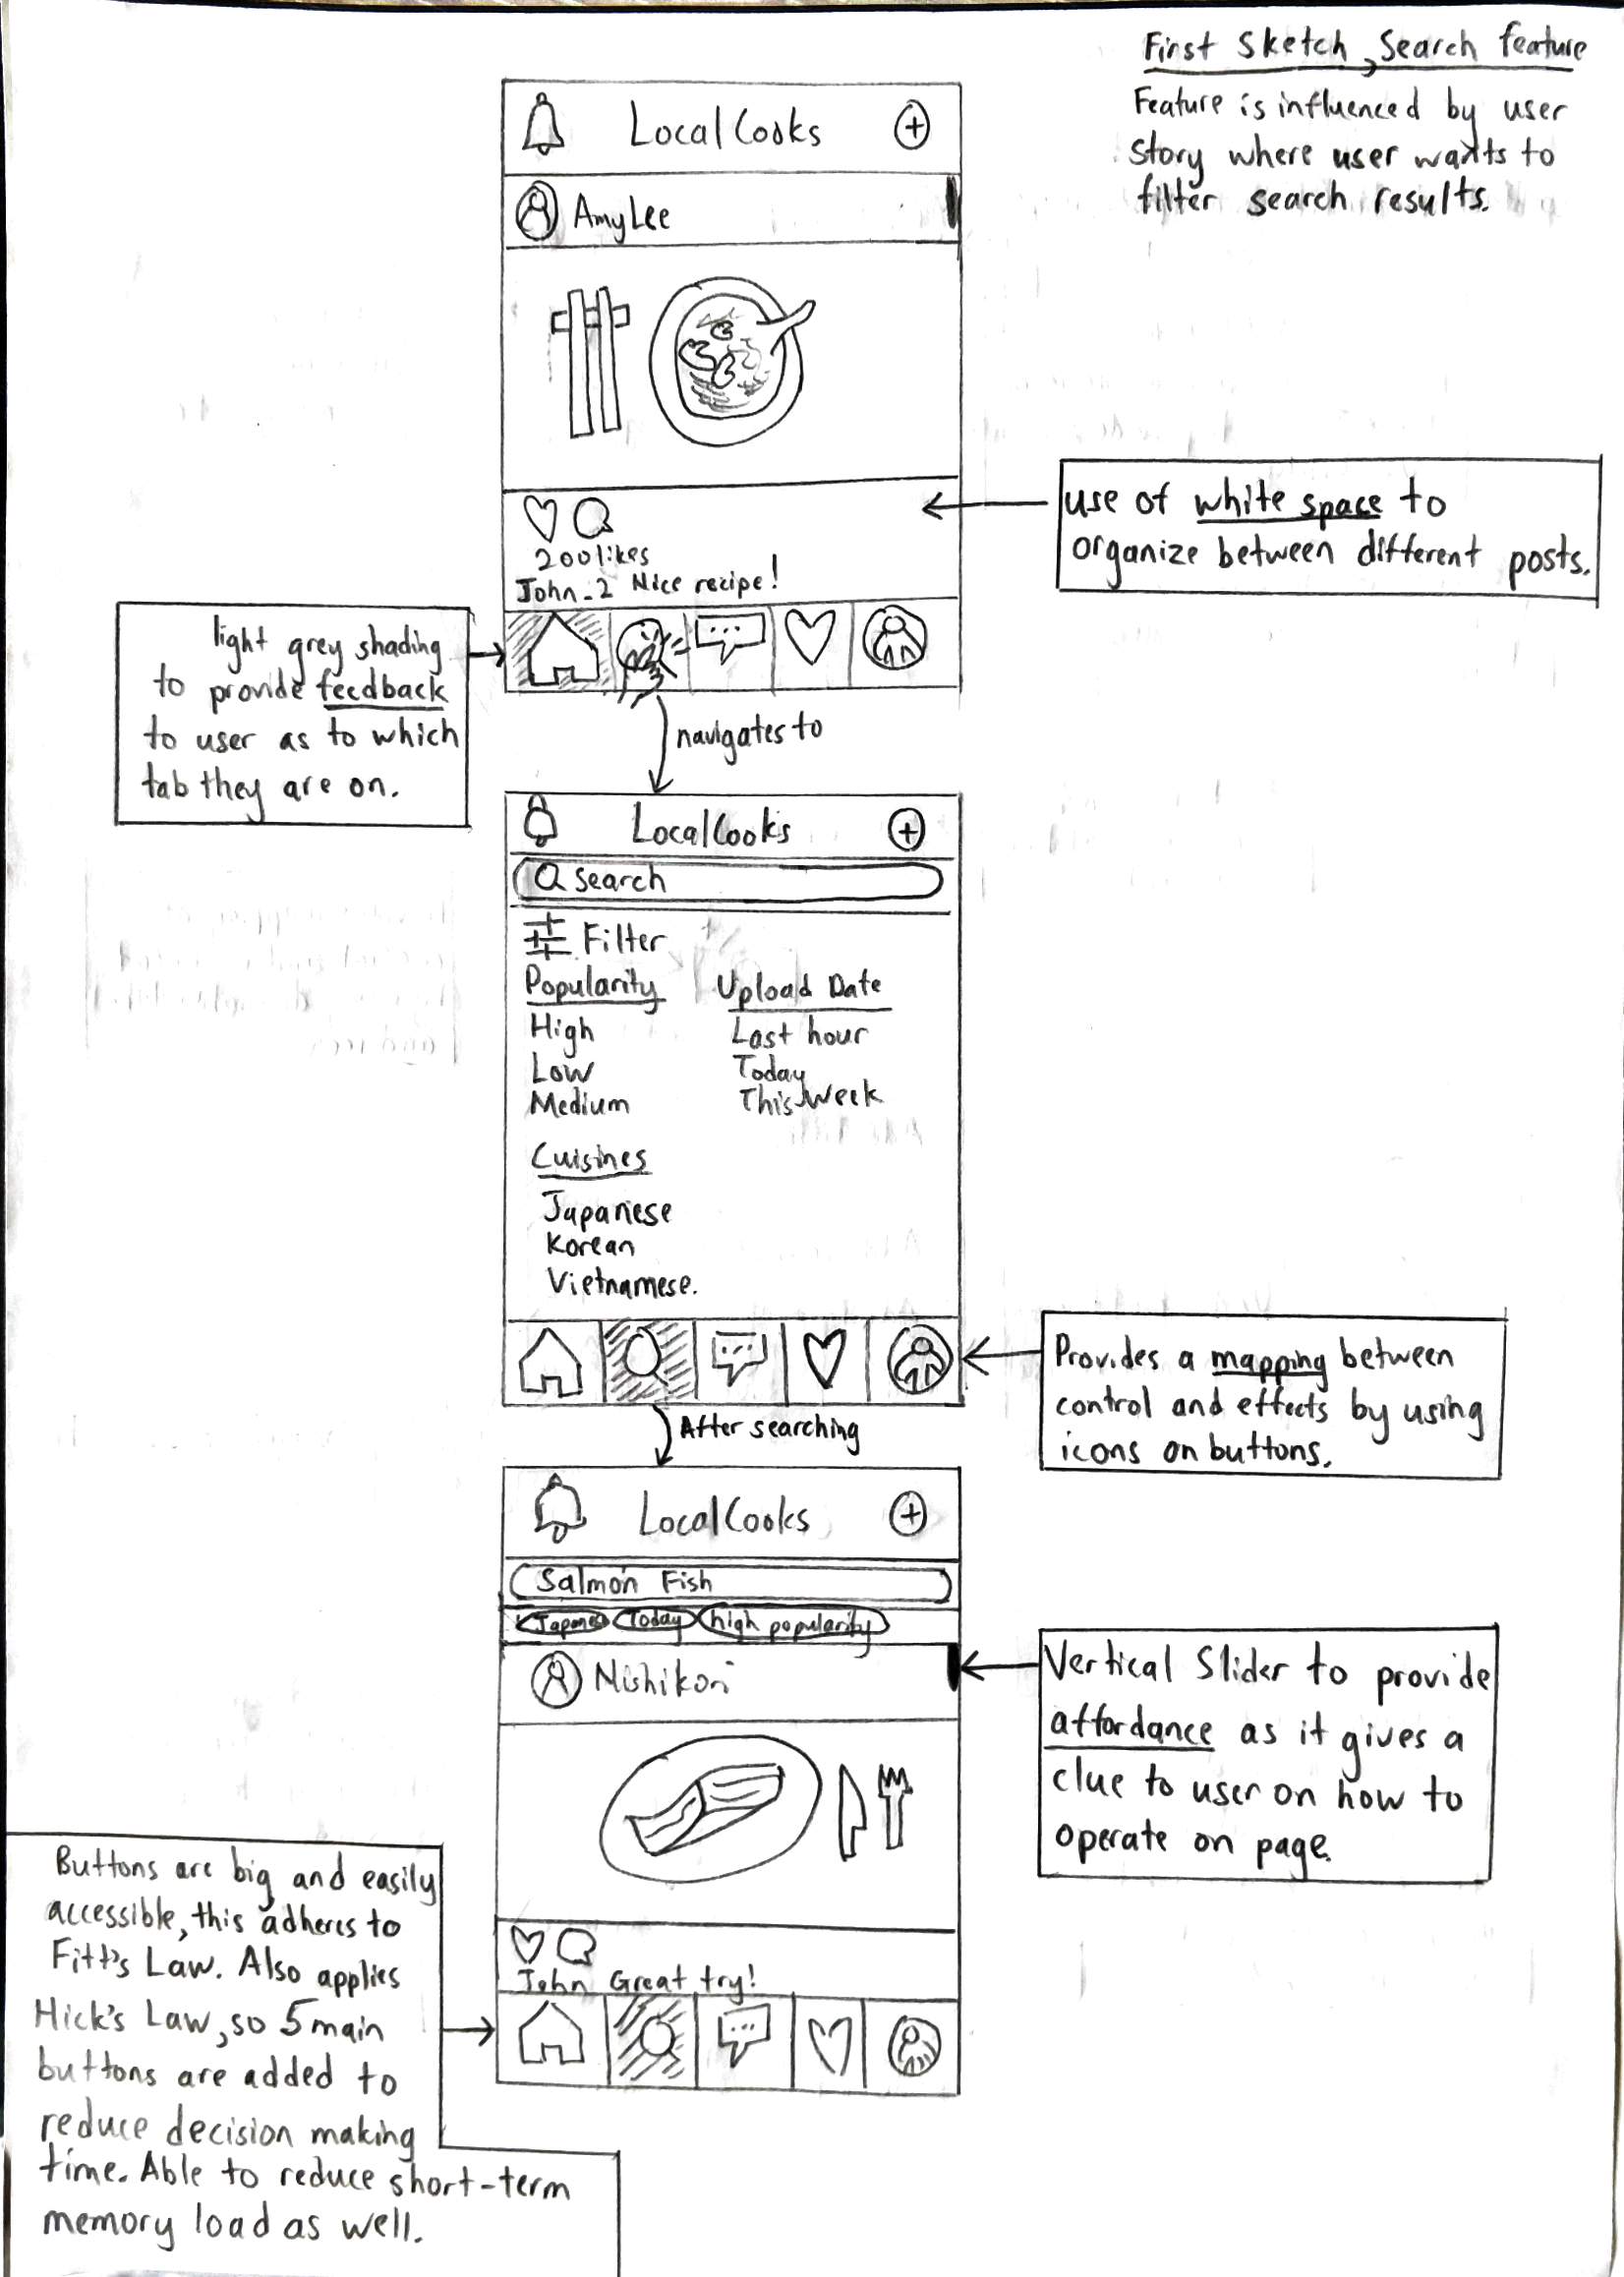 First Sketch, Search feature
Feature is influenced by user
story where user wants to
filter search results.
LocalCooks
Amy Lee
use of white space to
organize between different posts.
200 likes
John_2 Nice recipe!
light grey shading
to provide feedback
to user as to which
tab they are on.
navigates to
LocalCooks
Search
Filter
Popularity Upload Date
High Last hour
Low Today
Medium This Week
Cuisines
Japanese
Korean
Vietnamese.
Provides a mapping between
control and effects by using
icons on buttons.
After searching
LocalCooks
Salmon Fish
Japanese Today high popularity
Nishikori
Vertical Slider to provide
affordance as it gives a
clue to user on how to
operate on page.
Buttons are big and easily
accessible, this adheres to
Fitt's Law. Also applies
Hick's Law, so 5 main
buttons are added to
reduce decision making
time. Able to reduce short-term
memory load as well.
John Great try!